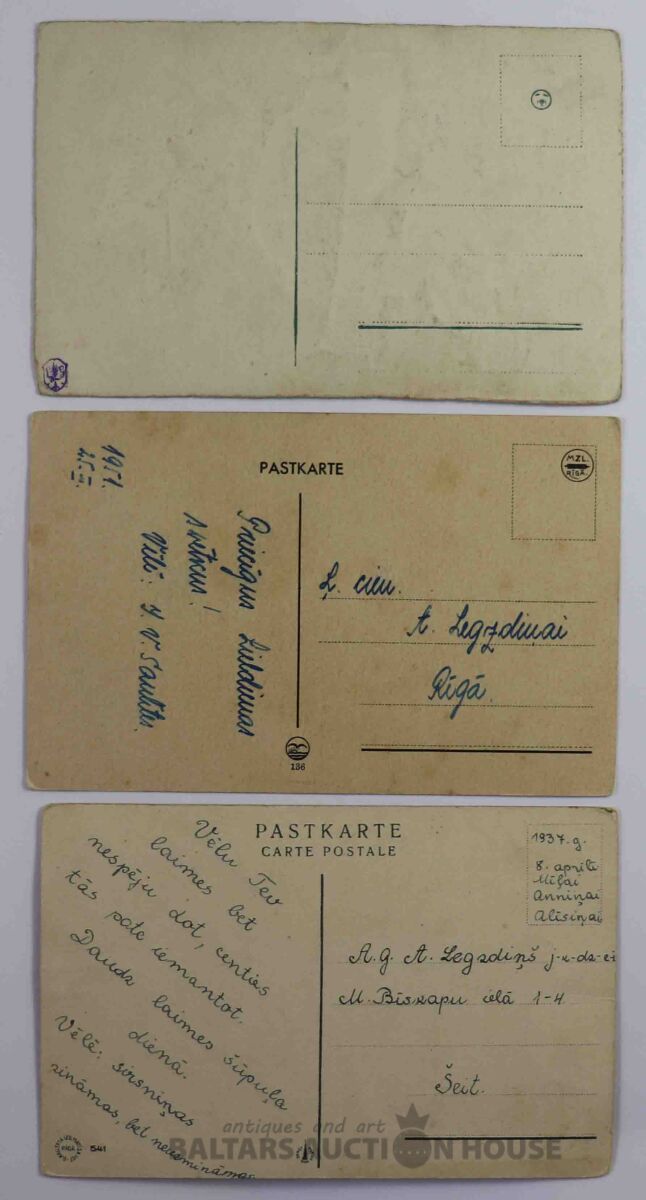 PASTKARTE
MZL.
RĪGĀ.
1951.
25. II.
Priecīgus Lieldienas
svētkus!
Vēlē: J. V Saulītes.
Ļ. cien.
A. Legzdiņai
Rīgā.
136
PASTKARTE
CARTE POSTALE
Vēlu Tev
laimes bet
nespēju dot, centies
tās pate iemantot.
Daudz laimes šūpuļa
dienā.
Vēlē: sirsniņas
zināmas, bet neuzmināmas
1937. g.
8. aprīlī
Mīļai
Anniņai
Alīsiņai
A. G. A. Legzdiņš j-r-dz-ei
M. Bīskapu ielā 1-4
Šeit.
RĪGĀ
541
antiques and art
BALTARS AUCTION HOUSE